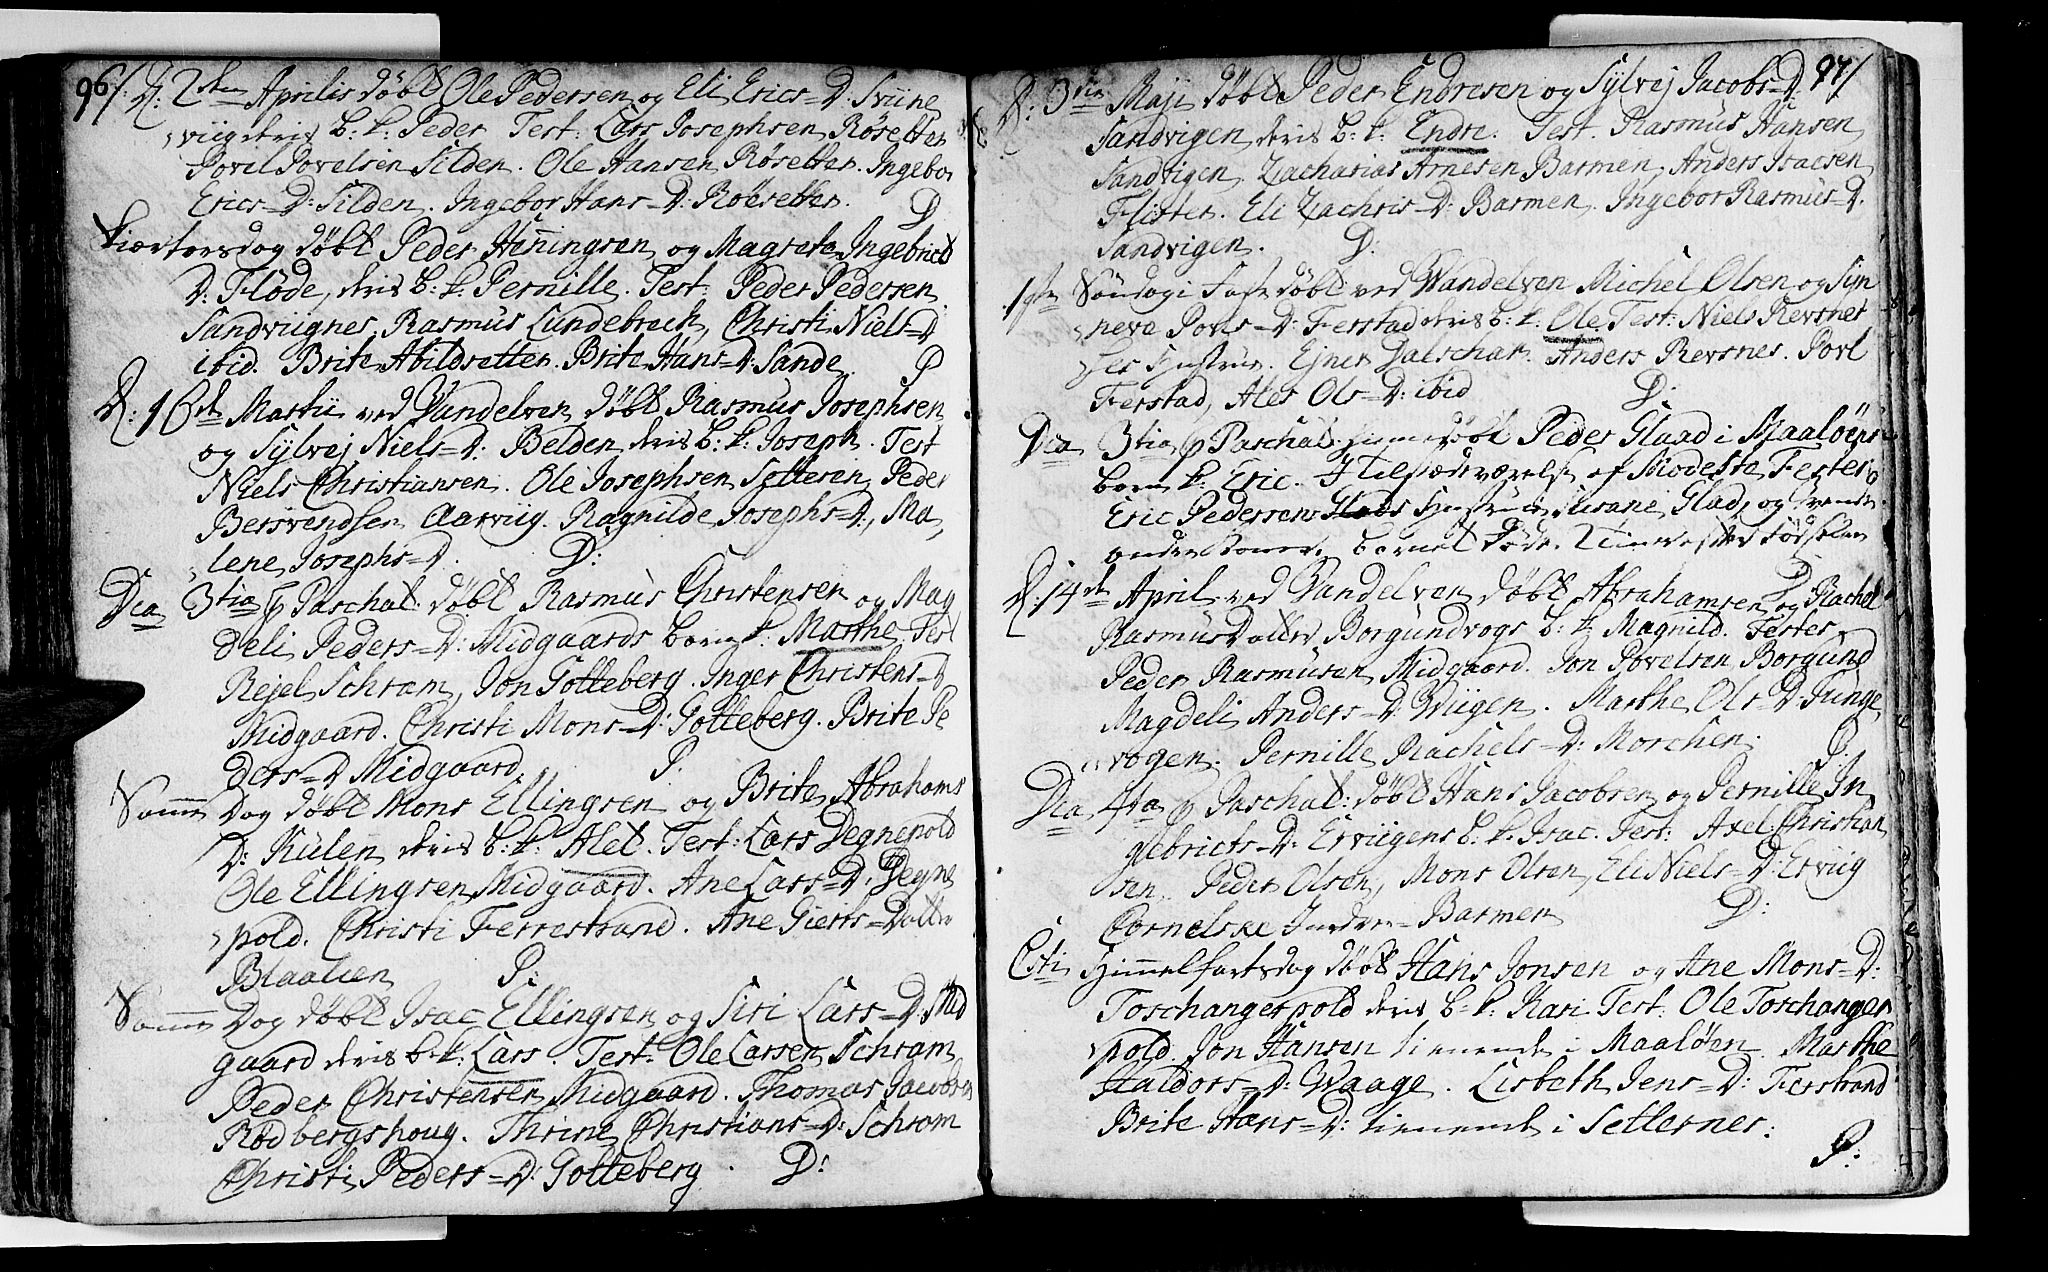 96/. D: 2den Aprilis døbt Ole Pedersen og Eli Erics=D: Sviine
viig deris b: k: Peder Test: Lars Josephsen Røsetter
Povel Povelsen Silden. Ole Hansen Røsetter. Ingebor
Erics=D: Silden. Ingebor Hans=D: Röesetter. D
Skiærtorsdag døbt Peder Henningsen og Magrete Ingebrict
D: Flöde, deris b: k: Pernille. Test: Peder Pedersen
Sandviignes. Rasmus Lundebrech, Christi Niels=D
ibid. Brite Abildsetter. Brite Hans=D: Sande. P
D: 16de Martii ved Vandelven døbt Rasmus Josephsen
og Sylvej Niels=D: Belden deris b: k: Joseph. Test
Niels Christiansen. Ole Josephsen Setteren, Peder
Bersvendsen Aarviig. Ragnilde Josephs=D:, Ma,
lene Josephs=D. D:
Dca 3tia p Paschat: døbt Rasmus Christensen og Mag
deli Peders=D: Midgaards barn k: Marthe. Test
Rejel Schram, Jon Gotteberg. Inger Christens=D
Midgaard. Christi Mons=D: Gotteberg. Brite Pe
ders=D Midgaard. P.
Samme Dag døbt Mons Ellingsen og Brite Abrahams
D: Kulen deris b: k: Alet. Test: Lars Degnepold
Ole Ellingsen Midgaard. Ane Lars=D: Degne
pold. Christi Ferrestrand. Ane Gierts=Datter
Blaalien P:
Samme Dag døbt Isac Ellingsen og Siri Lars=D: Mid
gaard deris b: k: Lars. Test: Ole Larsen Schram
Peder Christensen Midgaard. Thomas Jacobsen
Rødbergshoug. Thrine Christians=D: Schram
Christi Peders=D: Gotteberg. D:
97/
D: 3die Maji døbt Peder Endresen og Sylvej Jacobs=D.
Sandvigen, deris b: k: Endre. Test. Rasmus Hansen
Sandvigen, Zacharias Arnesen Barmen, Anders Isacsen
Flister. Eli Zachris=D: Barmen. Ingebor Rasmus=D.
Sandvigen. D:
1ste Søndag i Faste døbt ved Vandelven Michel Olsen og Syn
neve Povs=D: Ferstad deris b: k: Ole Test: Niels Revsnes
Hustrue. Ejner Dalschar. Anders Revsnes. Povl
Ferstad, Ales Ols=D: ibid D:
Dca 3tia p Paschat: hiemmedøbt Peder Glaad i Maalöens
barn k: Eric. I Tilstædeværelse af Modesta Testes
Eric Pedersens Glads Hustrue Susane Glad, og
andre koner. barnet døde. 2 Timer efter Fødselen
P
D: 14de April ved Vandelven døbt Abrahamsen og Rachel
Rasmusdatter Borgundvogs b: k: Magnild. Testes
Peder Rasmusen Midgaard. Jon Povelsen Borgund
Magdeli Anders=D: Wiigen. Marthe Ols=D: Tunge
vogen. Pernille Rachels=D: Morchen. P.
Dca 4ta p Paschat: døbt Hans Jacobsen og Pernille In
gebricts=D: Erviigens b. k. Isac. Test: Axel Christian
sen. Peder Olsen, Mons Olsen, Eli Niels=D: Erviig
Cornelske Barmen D:
Cisti Himmelfartsdag døbt Hans Jonsen og Ane Mons=D:
Toschangerpold deris b: k: Kari Test: Ole Toschanger
pold. Jon Hansen tienende i Maalöen. Marthe
Haldors=D: Waage. Lisbeth Jens=D: Ferstrand
Brite Hans=D: tienende i Setternes:
P: